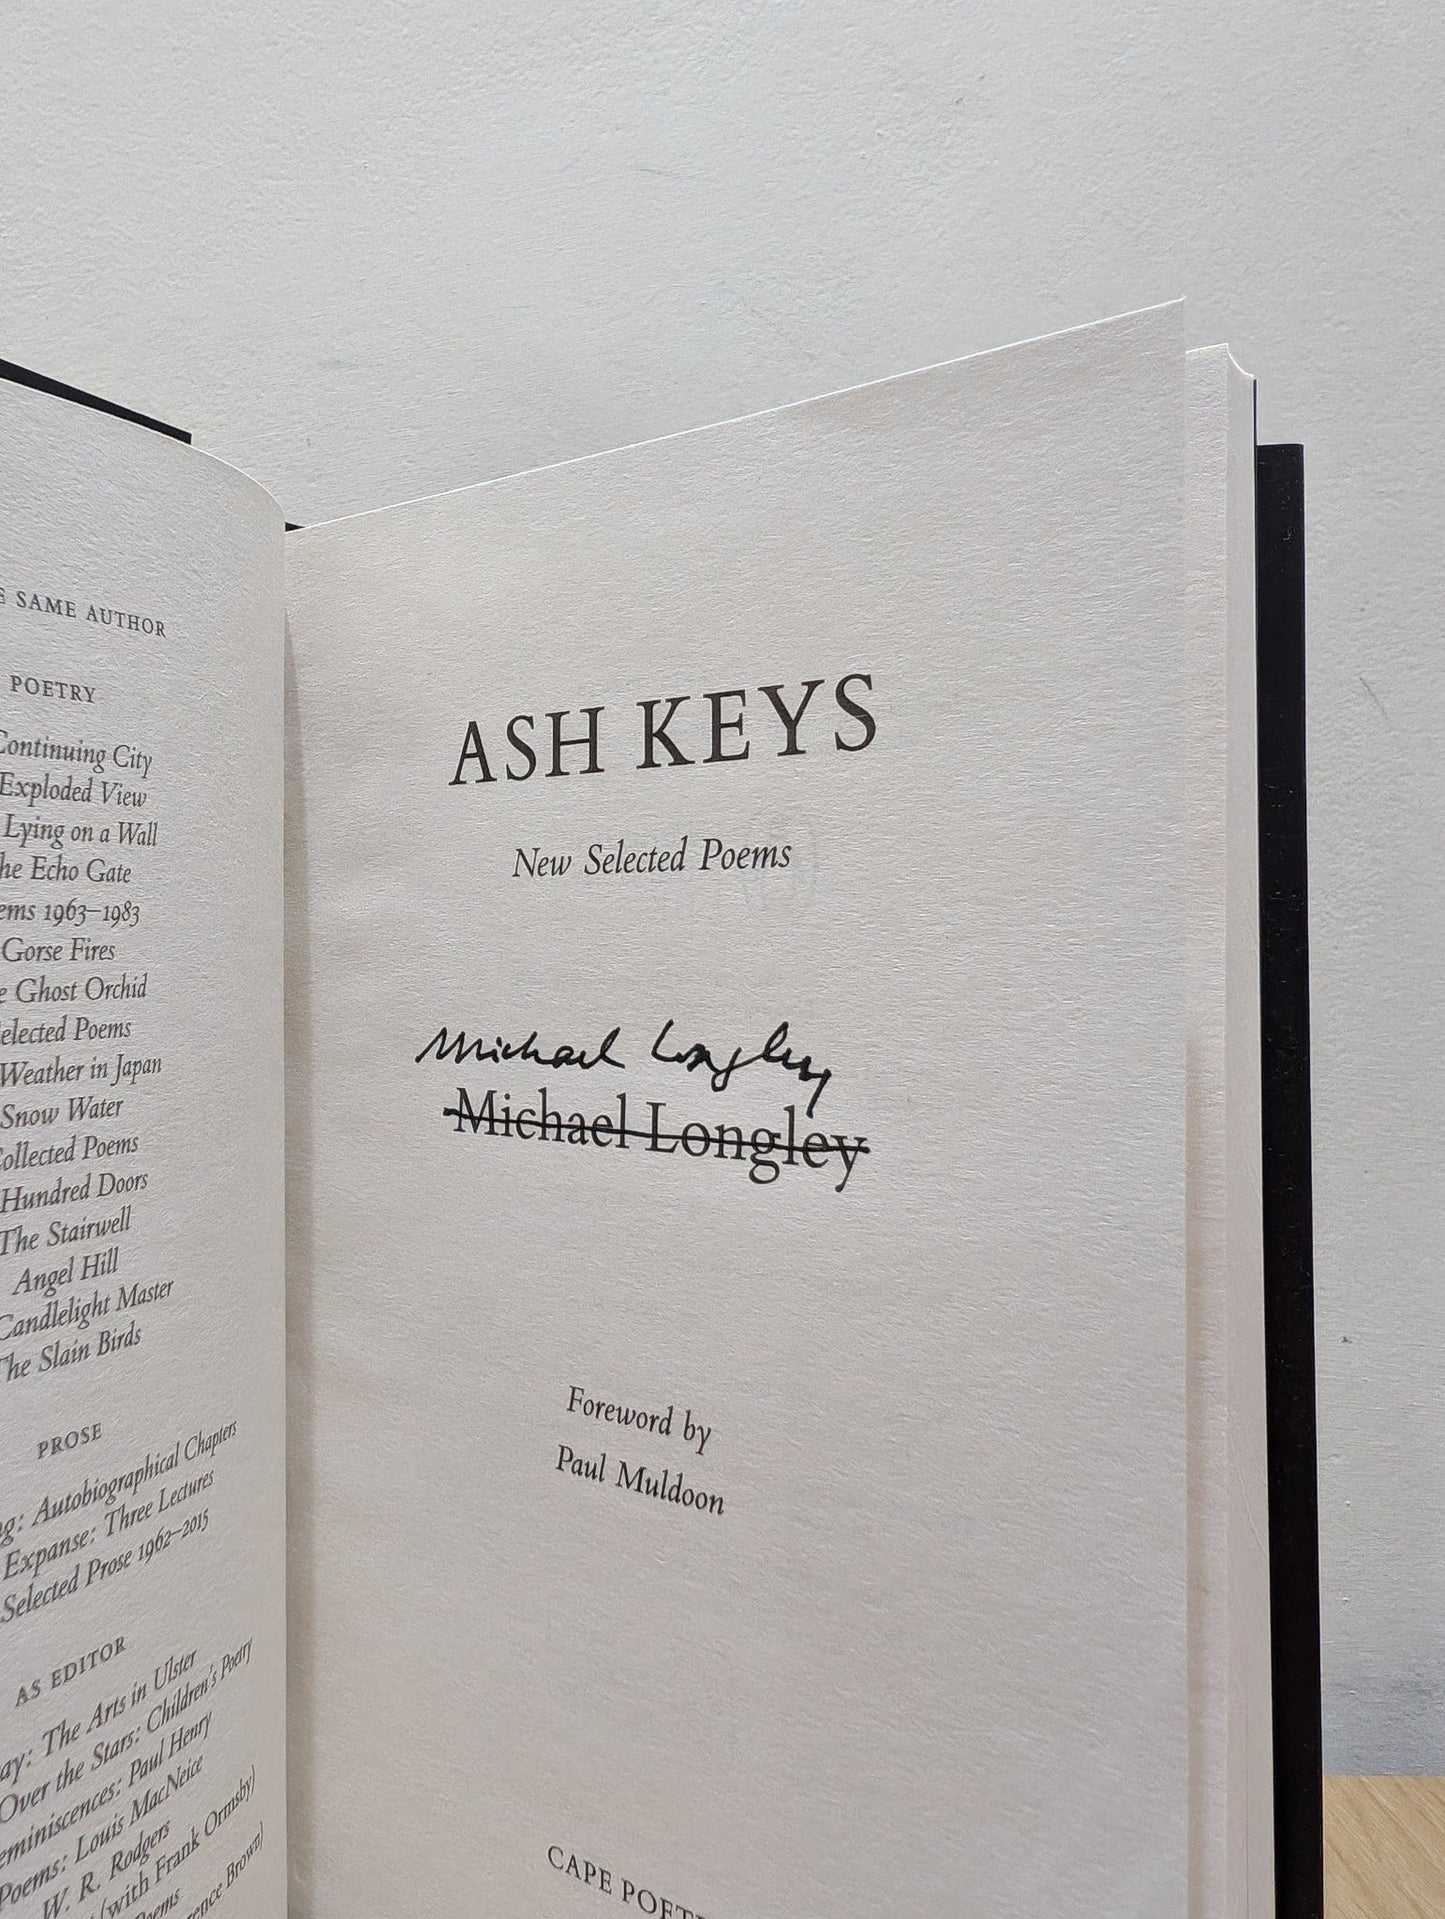 SAME AUTHOR
POETRY
Continuing City
Exploded View
Lying on a Wall
Echo Gate
1963–1983
Gorse Fires
Ghost Orchid
Selected Poems
Weather in Japan
Snow Water
Collected Poems
Hundred Doors
The Stairwell
Angel Hill
Candlelight Master
The Slain Birds
PROSE
Autobiographical Chapters
Expanse: Three Lectures
Selected Prose 1962–2015
AS EDITOR
The Arts in Ulster
Over the Stars: Children's Poetry
Paul Henry
Poems: Louis MacNeice
W. R. Rodgers
(with Frank Ormsby)
Poems
Brown)
ASH KEYS
New Selected Poems
Michael Longley
Michael Longley
Foreword by
Paul Muldoon
CAPE